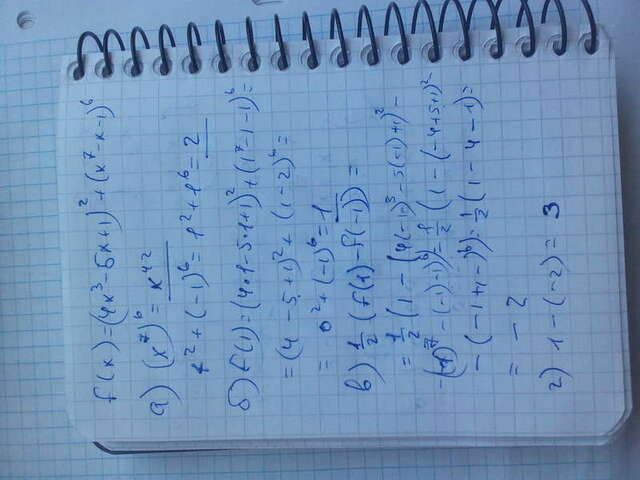 f(x)=(4x³-5x+1)²+(x⁷-x-1)⁶
а) (x⁷)⁶ = x⁴²
1²+(-1)⁶ = 1²+1⁶=2
б) f(1)=(4·1-5·1+1)²+(1⁷-1-1)⁶=
=(4-5+1)²+(1-2)⁶=
= 0²+(-1)⁶=1
в) 1/2 (f(1)-f(-1)) =
= 1/2 (1-(4(-1)³-5(-1)+1)²-
-((-1)⁷-(-1)-1)⁶)=1/2 (1-(-4+5+1)²-
-(-1+1-1)⁶)=1/2 (1-4-1)=
= -2
г) 1-(-2)=3